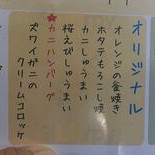 オリジナル
オレンジの釜焼き
ホタテもろこし焼
カニしゅうまい
桜えびしゅうまい
★カニハンバーグ
ズワイガニの
クリームコロッケ